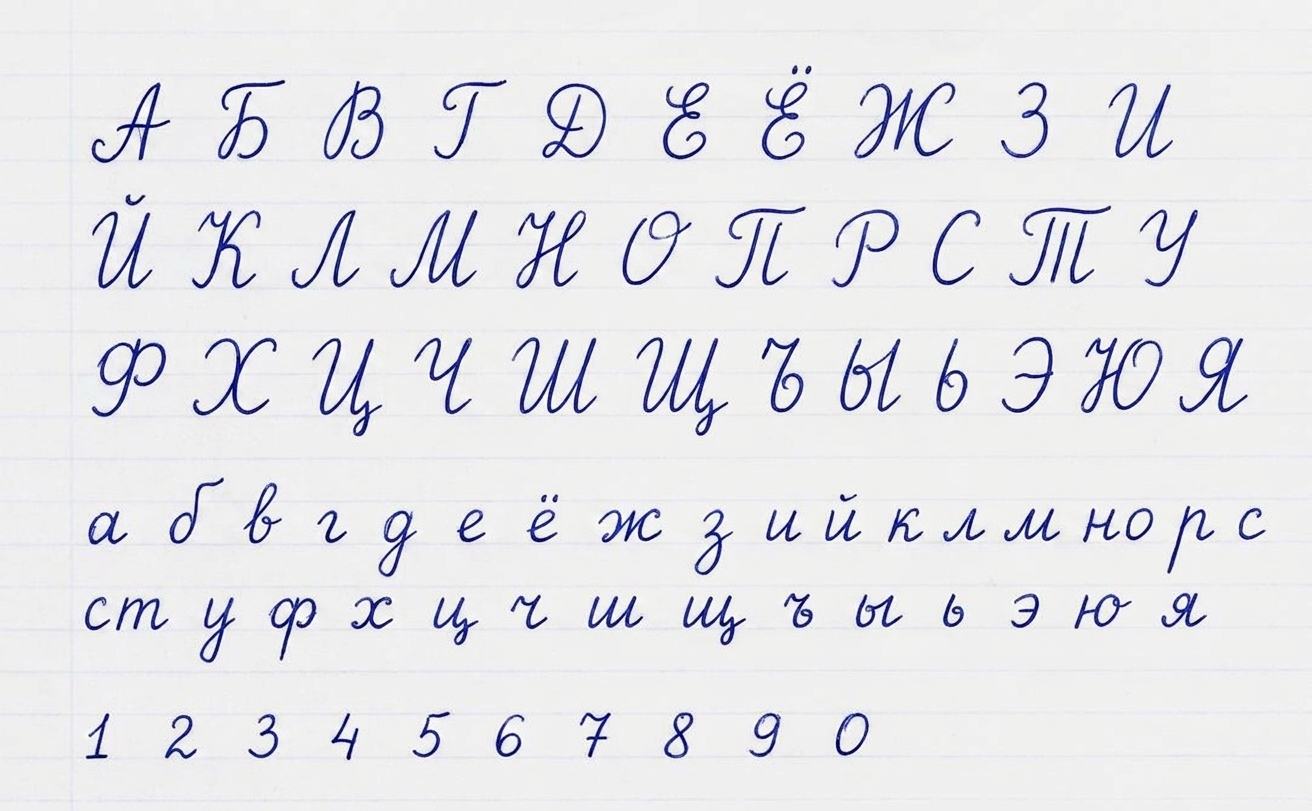 А Б В Г Д Е Ё Ж З И
Й К Л М Н О П Р С Т У
Ф Х Ц Ч Ш Щ Ъ Ы Ь Э Ю Я
а б в г д е ё ж з и й к л м н о р с
ст у ф х ц ч ш щ ъ ы ь э ю я
1 2 3 4 5 6 7 8 9 0